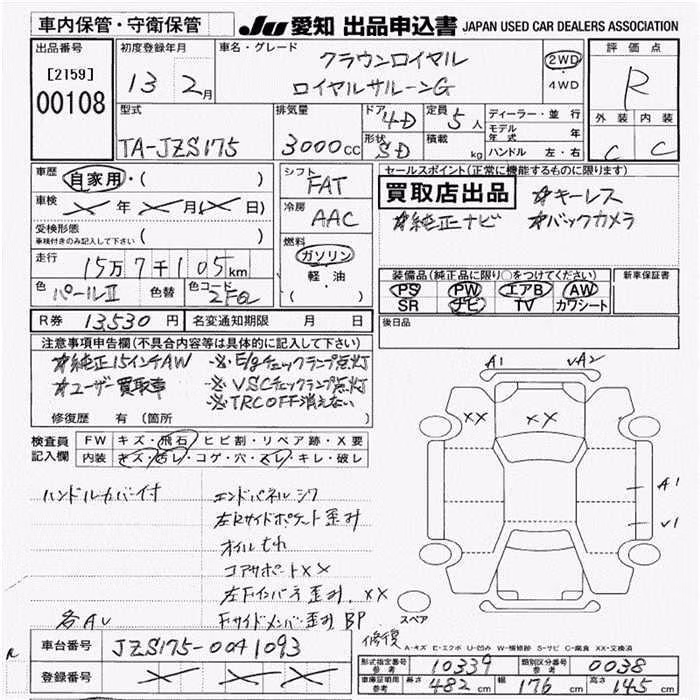 車内保管・守衛保管
JU 愛知 出品申込書 JAPAN USED CAR DEALERS ASSOCIATION
出品番号
[2159]
00108
初度登録年月
13 2月
車名・グレード
クラウンロイヤル
ロイヤルサルーンG
2WD
・
4WD
評価点
R
外装 内装
C C
型式
TA-JZS175
排気量
3000cc
ドア 4D
形状 SD
定員 5人
積載 kg
ディーラー・並行
モデル年式 年
ハンドル 左・右
車歴 自家用・( )
車検 年 月( 日)
受検形態
車検付きのみ記入して下さい ( )
走行 15万7千105km
色 パールII 色替 色コード 2FQ
シフト FAT
冷房 AAC
燃料
ガソリン
軽・油
( )
セールスポイント(正常に機能するものに限ります)
買取店出品 ☆キーレス
☆純正ナビ ☆バックカメラ
装備品(純正品に限り○をつけてください)
PS PW エアB AW
SR ナビ TV カワシート
新車保証書
後日品
R券 13,530円 名変通知期限 月 日
注意事項申告欄(不具合内容等は具体的に記入して下さい)
☆純正15インチAW ※E/gチェックランプ点灯
☆ユーザー買取車 ※VSCチェックランプ点灯
※TRC OFF消えない
修復歴 有(箇所 )
検査員記入欄
FW キズ・飛石・ヒビ割・リペア跡・X要
内装 キズ・汚レ・コゲ・穴・スレ・キレ・破レ
ハンドルカバー付 エンドパネルシワ
左Rサイドポケット歪み
オイルもれ
コアサポートXX
左Fインパネ歪み XX
各AU Fサイドメンバー歪み BP
修復
A1 UA2
XX XX
A1
U1
スペア
A-キズ E-エクボ U-凹み W-補修跡 S-サビ C-腐食 XX-交換済
車台番号 JZS175-0041093
登録番号
形式指定番号 参考 10339 類別区分番号 参考 0038
車庫証明用 参考 長さ 482cm 幅 176cm 高さ 145cm